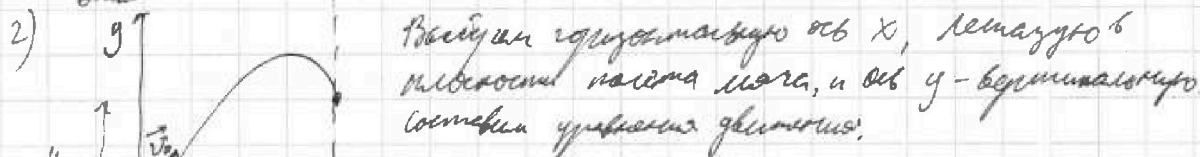 2) y Выберем горизонтальную ось x, лежащую в
плоскости полёта мяча, и ось y - вертикальную
v₀ составим уравнения движения: